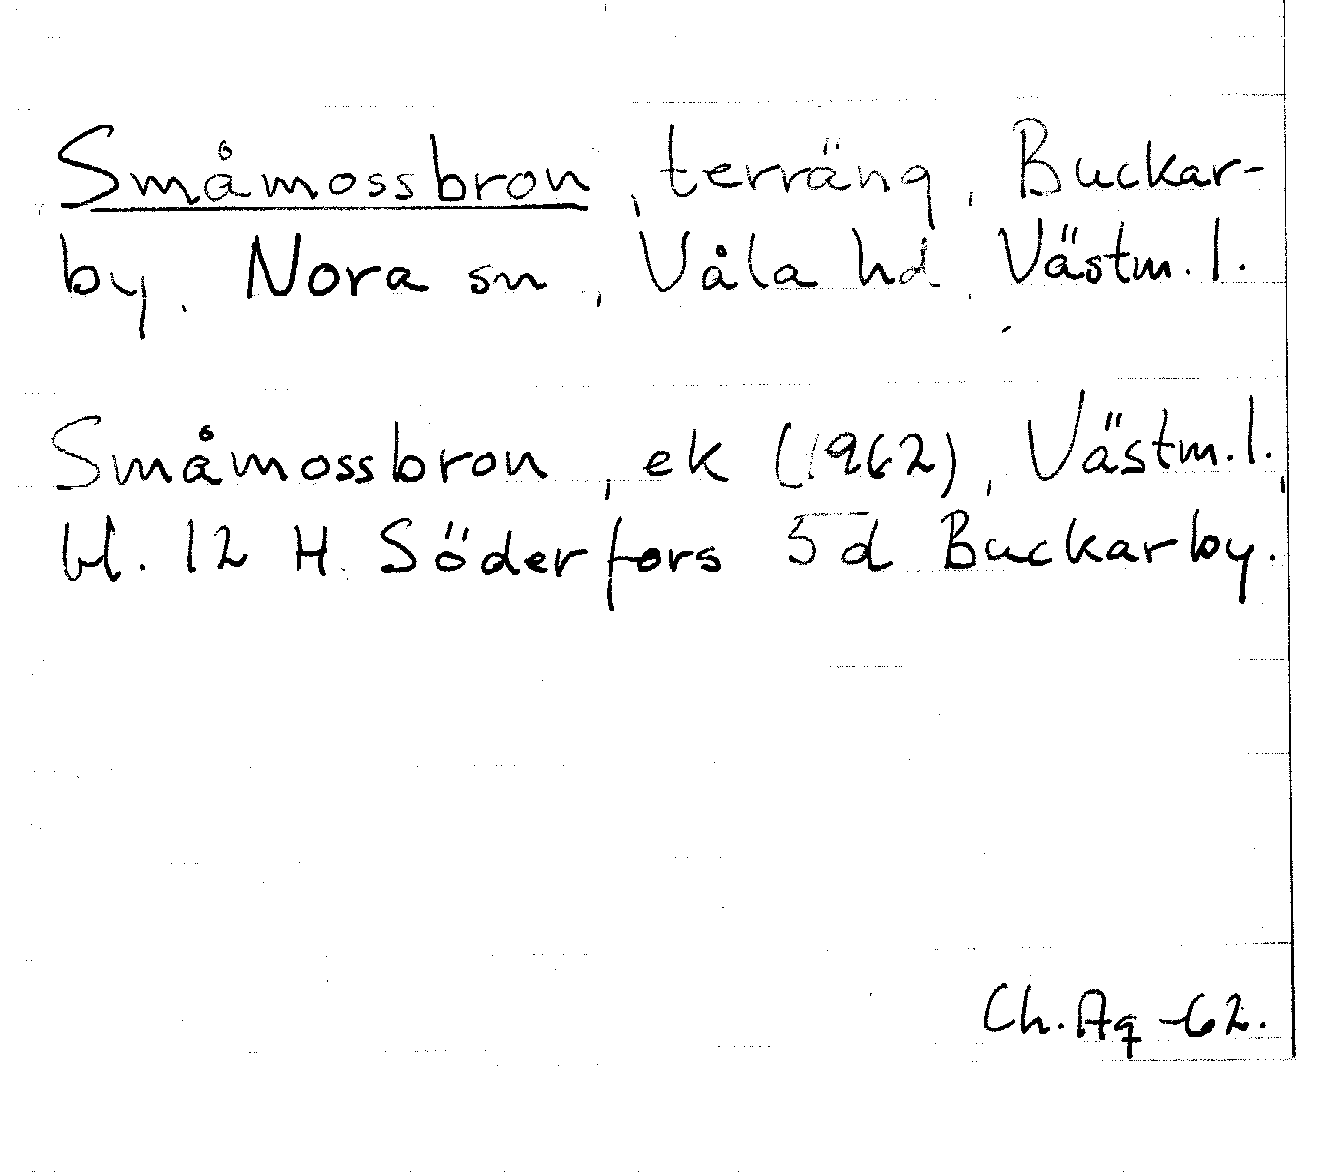 Småmossbron, terräng, Buckar-
by, Nora sn, Våla hd, Västm. l.
Småmossbron, ek (1962), Västm. l.,
bl. 12 H Söderfors 5 d Buckarby.
Ch. Aq -62.